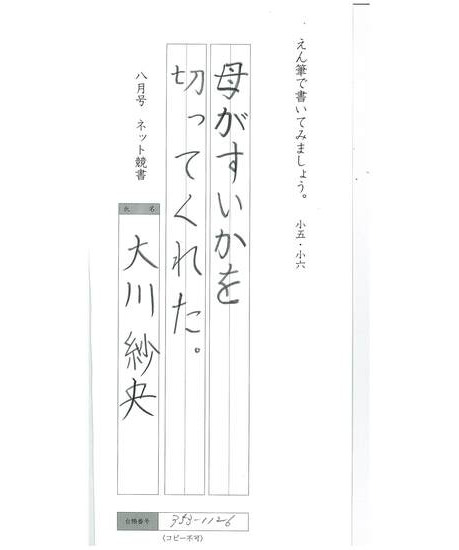 えん筆で書いてみましょう。 小五・小六
母がすいかを
切ってくれた。
八月号 ネット競書
氏名
大川紗央
台帳番号 353-1126
(コピー不可)